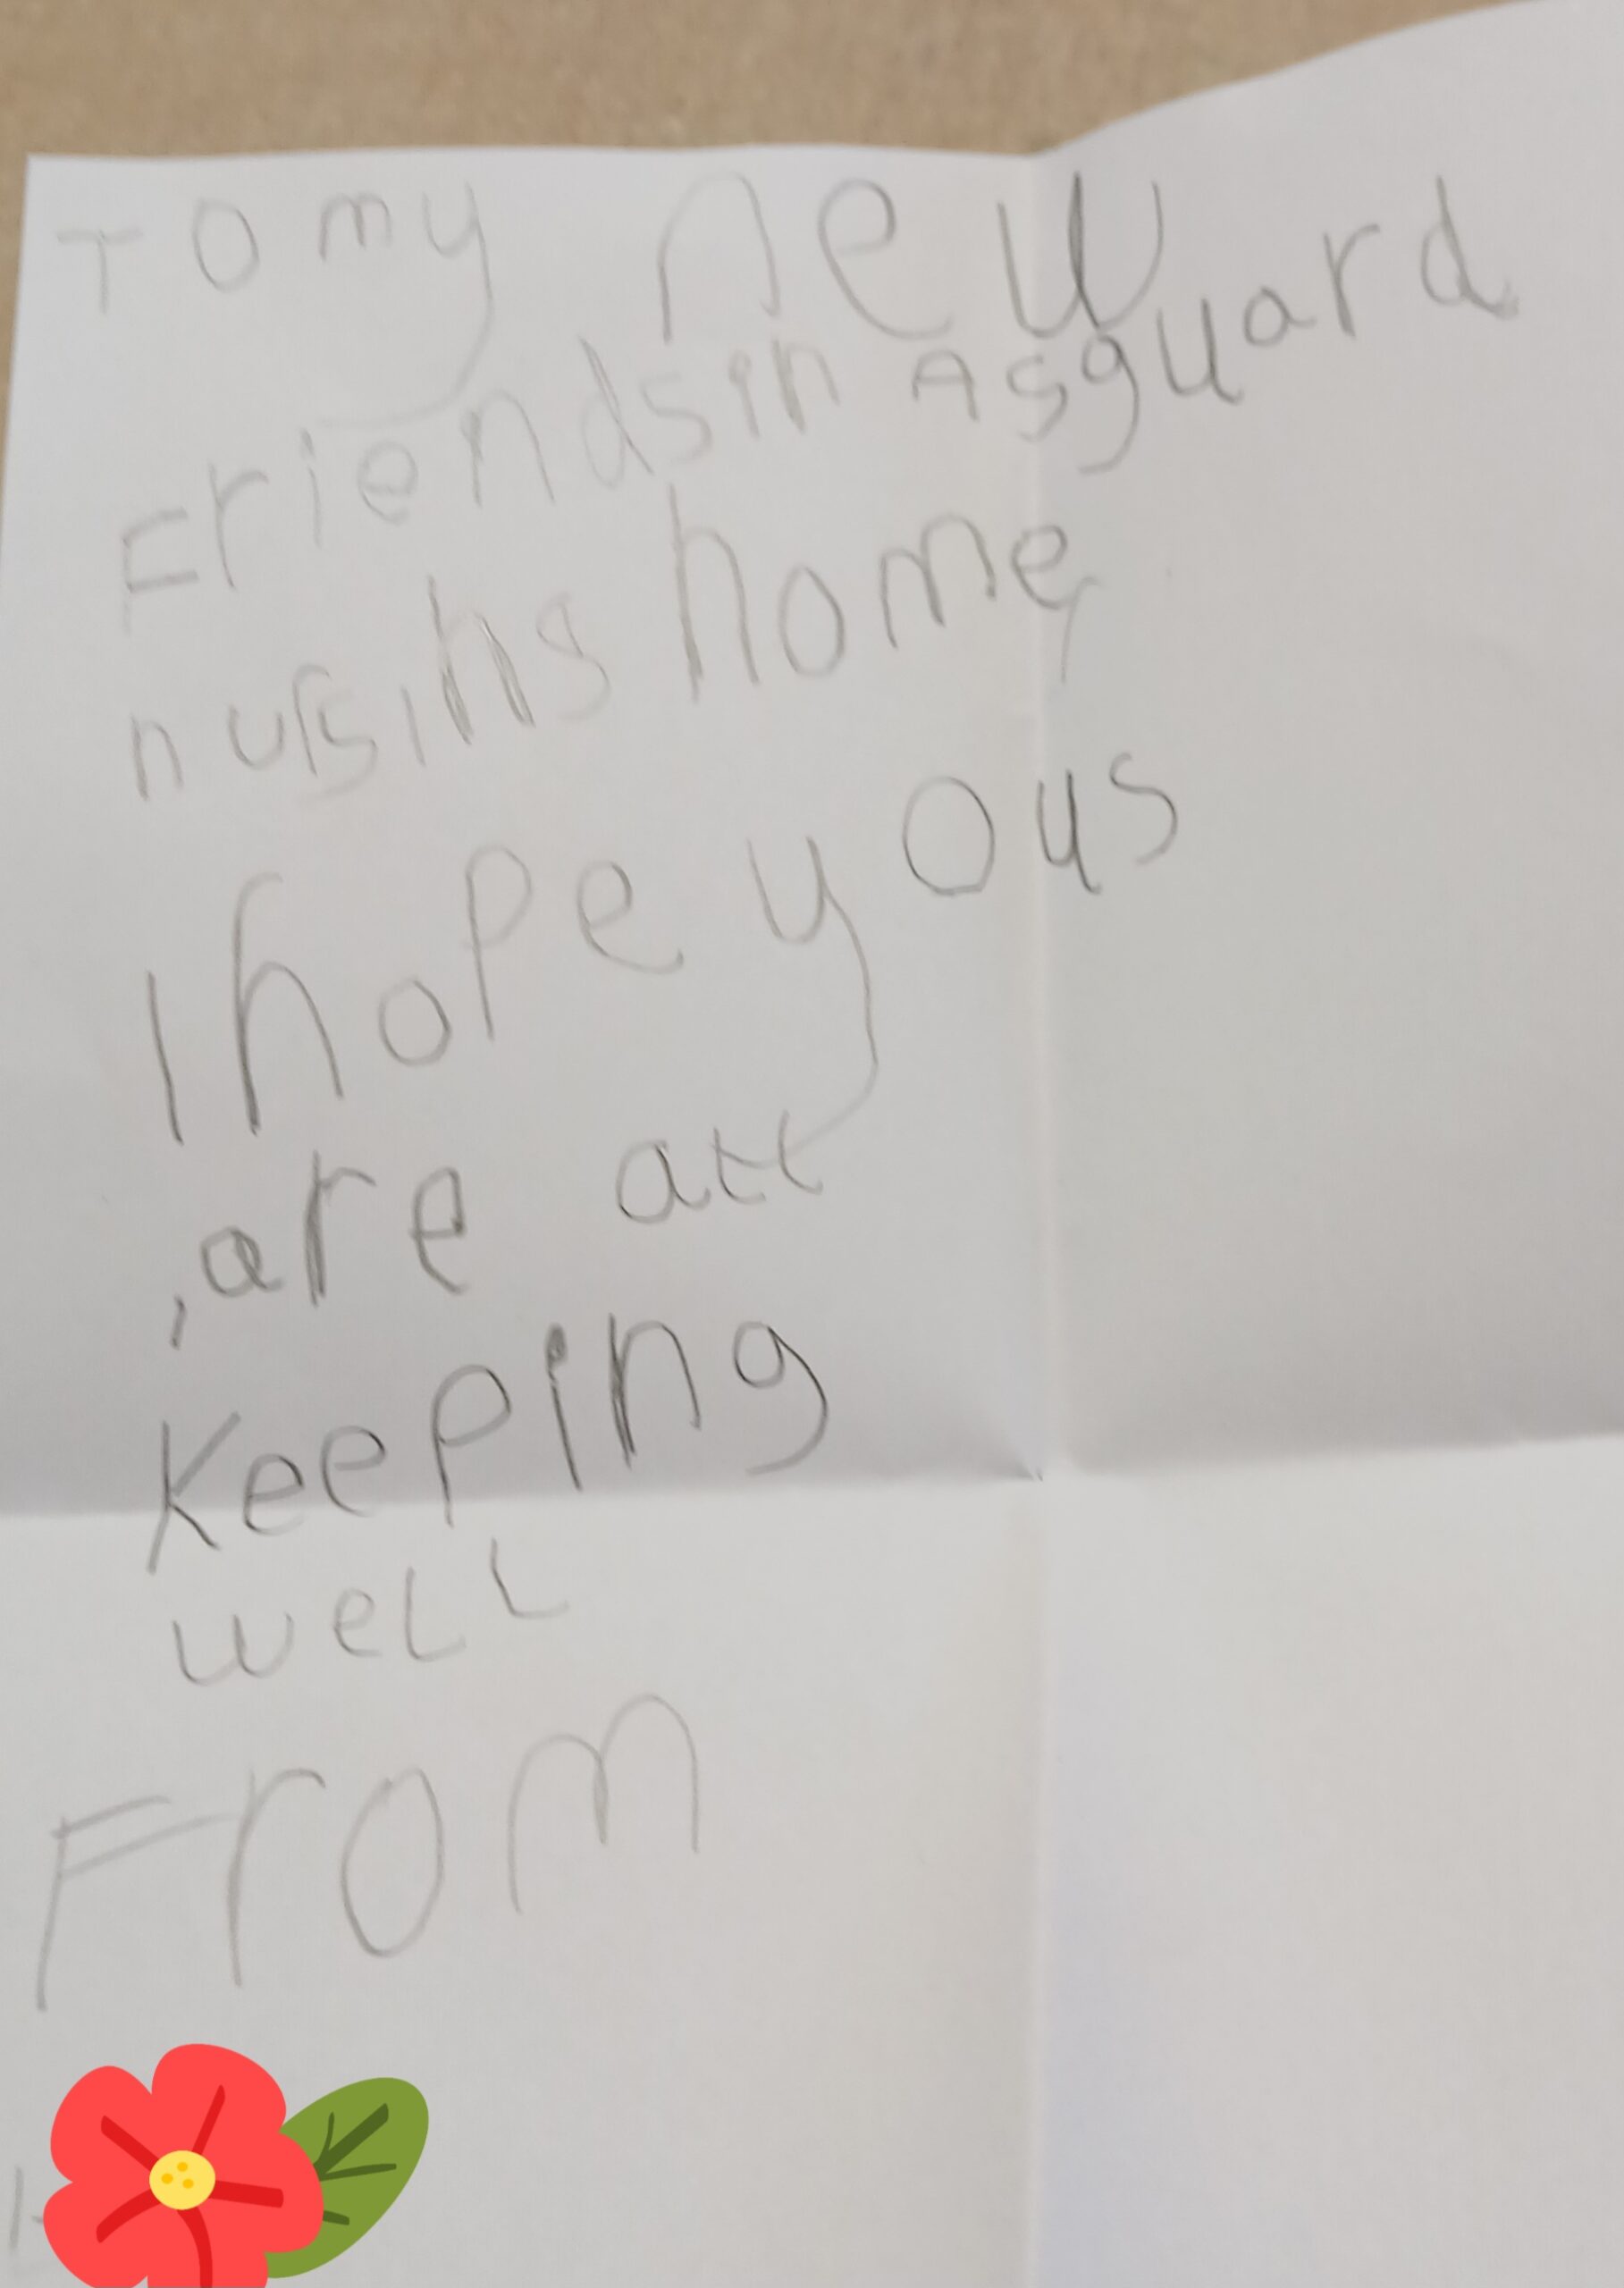 To my new
Friends in Asguard
nursins home,
I hope yous
, are all
Keeping
well
From